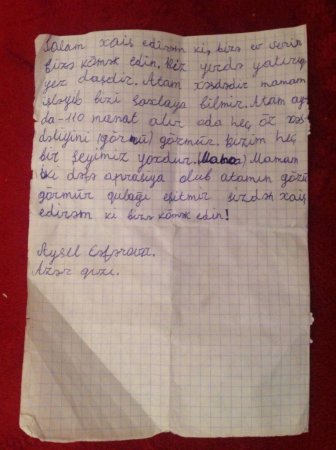 Salam xaiş edirəm ki, bizə ev verin
bizə kömək edin. Biz yerdə yatırıq
yer daşdır. Atam xəstədir mamam
işləyib bizi saxlaya bilmir. Atam ay
da-110 manat alır oda heç öz xəs
dəliyini (görmü) görmür. Bizim heç
bir şeyimiz yoxdur. Mamam
iki dəfə aprasiya olub atamın gözü
görmür qulağı eşitmir sizdən xaiş
edirəm ki bizə kömək edin!
Aysel
Azər qızı.